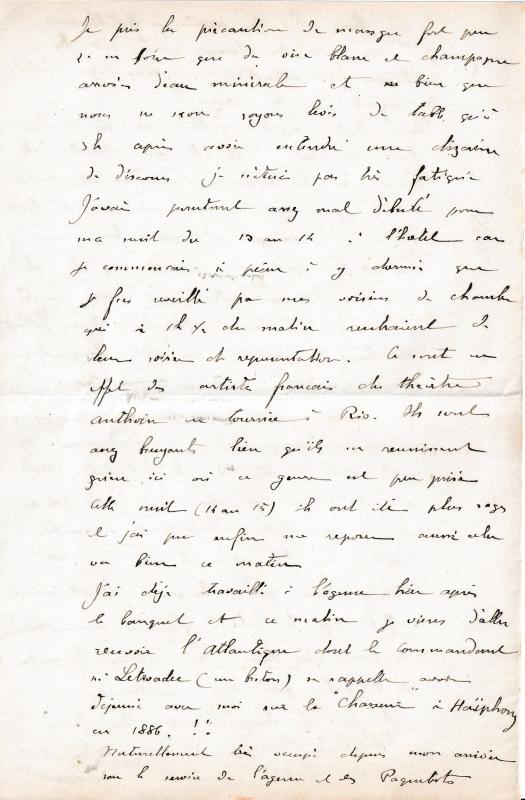 Je pris la précaution de manger fort peu
et ne boire que du vin blanc et champagne
arrosés d'eau minérale et si bien que
nous ne nous soyons levés de table qu'à
3h après avoir entendu une dizaine
de discours je n'étais pas très fatigué
J'avais pourtant assez mal débuté pour
ma nuit du 13 au 14 à l'hôtel car
je commençais à peine à y dormir que
je fus réveillé par mes voisins de chambre
qui à 1h ½ du matin rentraient de
leur soirée et représentation. Ce sont en
effet des artistes français du théâtre
Anthoin en tournée à Rio. Ils sont
assez bruyants bien qu'ils ne réunissent
guère ici où ce genre est peu prisé
Cette nuit (14 au 15) ils ont été plus sages
et j'ai pu enfin me reposer aussi cela
va bien ce matin
J'ai déjà travaillé à l'agence hier après
le banquet et ce matin je viens d'aller
recevoir l'Atlantique dont le commandant
Mr Letroadec (un breton) se rappelle avoir
déjeuné avec moi sur la "Chasseur" à Haïphong
en 1886. !!
Naturellement très occupé depuis mon arrivée
par le service de l'agence et des Paquebots